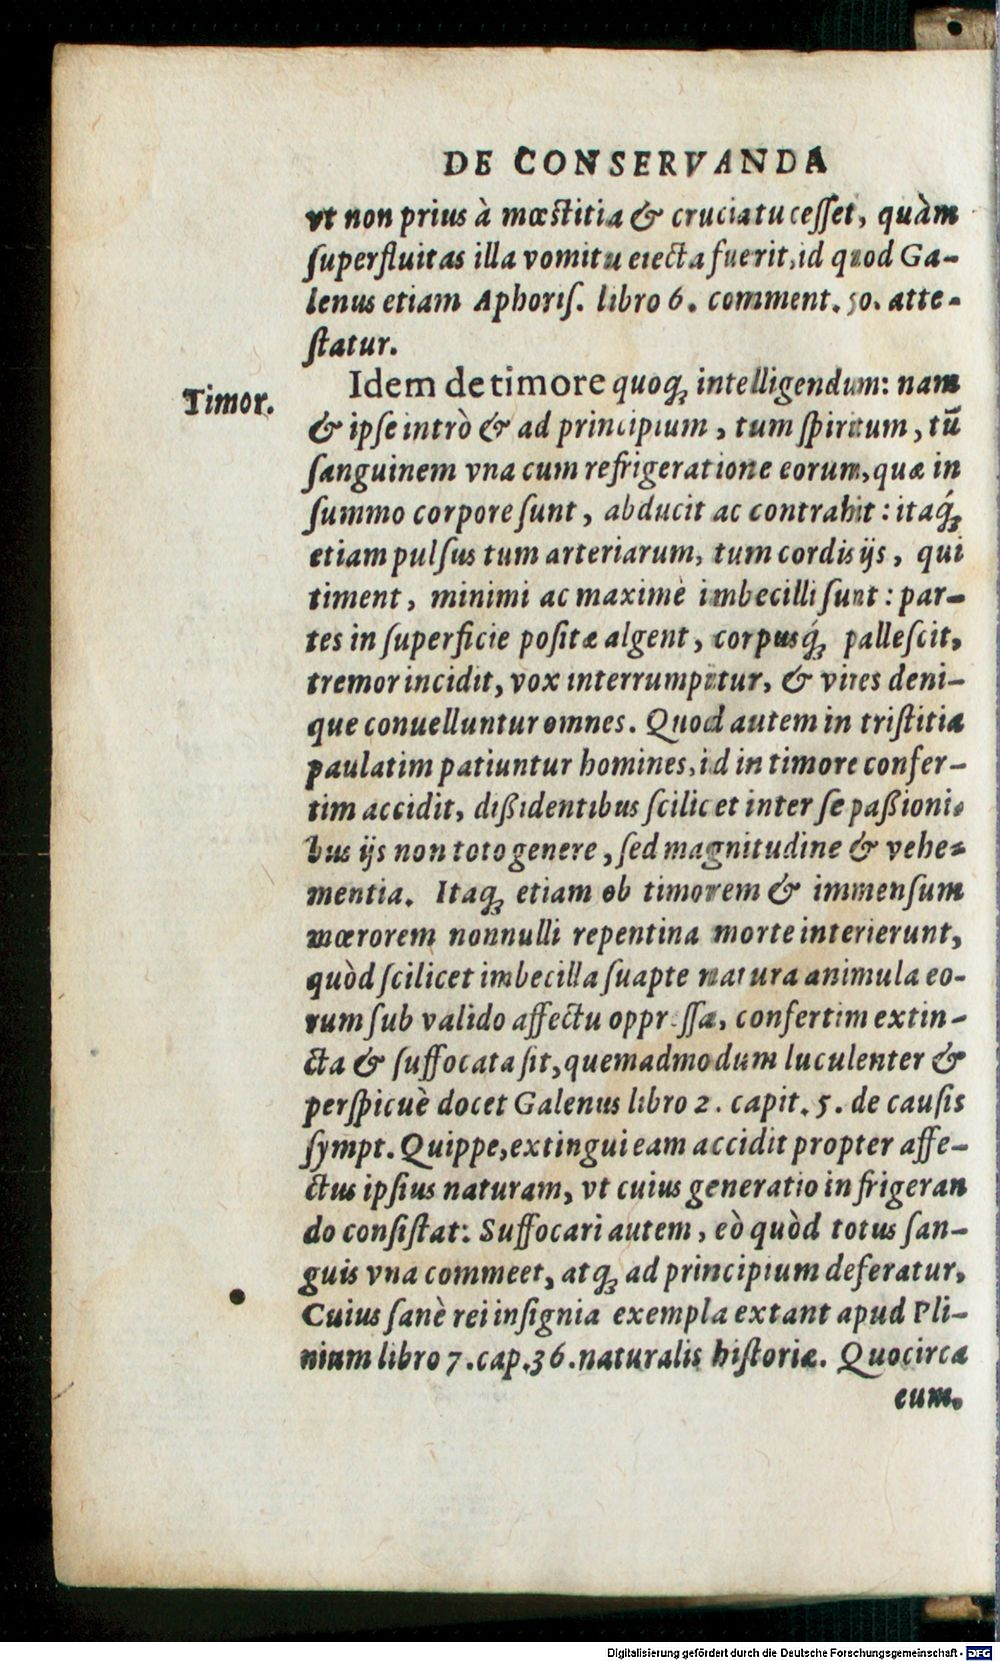 DE CONSERVANDA
vt non prius à mœstitia & cruciatu cesset, quàm
superfluitas illa vomitu eiecta fuerit, id quod Ga-
lenus etiam Aphoris. libro 6. comment. 50. atte-
statur.
Timor.
Idem de timore quoq; intelligendum: nam
& ipse intrò & ad principium, tum spirituum, tũ
sanguinem vna cum refrigeratione eorum, quæ in
summo corpore sunt, abducit ac contrahit: itaq́;
etiam pulsus tum arteriarum, tum cordis ijs, qui
timent, minimi ac maximè imbecilli sunt: par-
tes in superficie positæ algent, corpusq́; pallescit,
tremor incidit, vox interrumpitur, & vires deni-
que conuelluntur omnes. Quod autem in tristitia
paulatim patiuntur homines, id in timore confer-
tim accidit, dißidentibus scilicet inter se paßioni-
bus ijs non toto genere, sed magnitudine & vehe-
mentia. Itaq; etiam ob timorem & immensum
mœrorem nonnulli repentina morte interierunt,
quòd scilicet imbecilla suapte natura animula eo-
rum sub valido affectu oppressa, confertim extin-
cta & suffocata sit, quemadmodum luculenter &
perspicuè docet Galenus libro 2. capit. 5. de causis
sympt. Quippe, extingui eam accidit propter affe-
ctus ipsius naturam, vt cuius generatio in frigeran
do consistat: Suffocari autem, eò quòd totus san-
guis vna commeet, atq; ad principium deferatur,
Cuius sanè rei insignia exempla extant apud Pli-
nium libro 7. cap. 36. naturalis historiæ. Quocirca
eum.
Digitalisierung gefördert durch die Deutsche Forschungsgemeinschaft - DFG